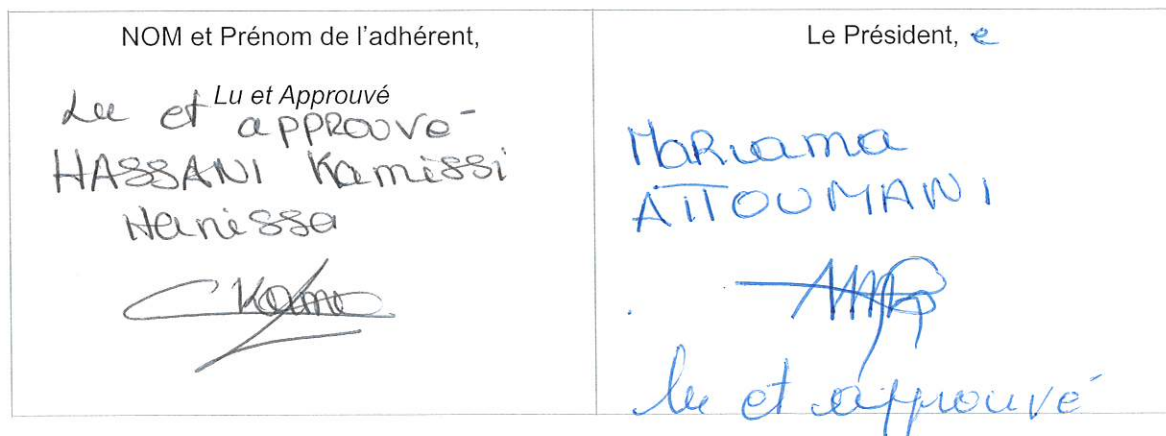 NOM et Prénom de l'adhérent,
Lu et Approuvé
Lu et approuvé-
HASSANI Kamissi
Hanissa
Kami
Le Président, e
Mariama
ATTOUMANI
lu et approuvé